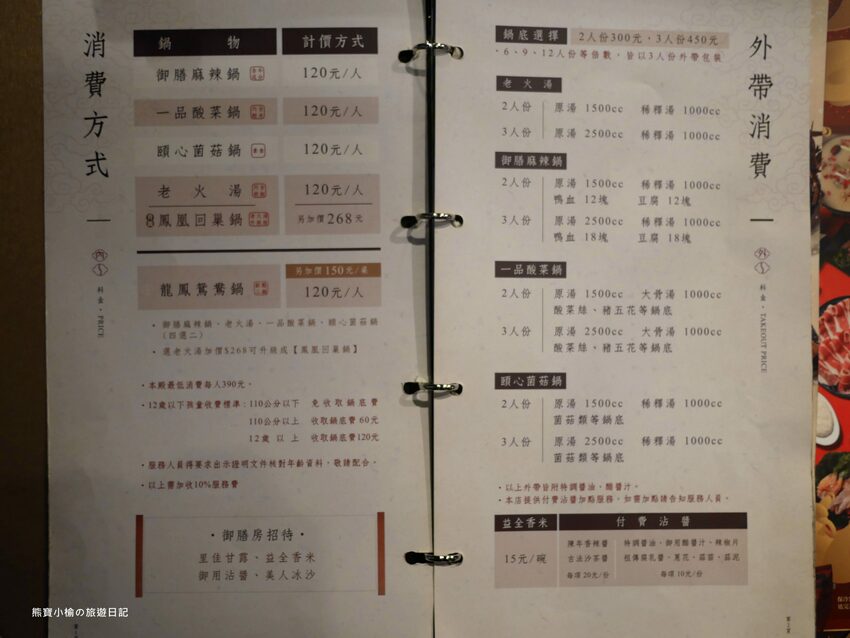 消費方式
內
料金・PRICE
鍋物 計價方式
御膳麻辣鍋 120元/人
一品酸菜鍋 120元/人
頤心菌菇鍋 120元/人
老火湯 120元/人
鳳凰回巢鍋 另加價268元
另加價150元/桌
龍鳳鴛鴦鍋 120元/人
・御膳麻辣鍋、老火湯、一品酸菜鍋、頤心菌菇鍋
(四選二)
・選老火湯加價$268可升級成【鳳凰回巢鍋】
・本殿最低消費每人390元。
・12歲以下孩童收費標準:110公分以下 免收取鍋底費
110公分以上 收取鍋底費60元
12歲以上 收取鍋底費120元
・服務人員得要求出示證明文件核對年齡資料,敬請配合。
・以上需加收10%服務費
・御膳房招待・
里佳甘露、益全香米
御用沾醬、美人冰沙
外帶消費
外
料金・TAKEOUT PRICE
鍋底選擇 2人份300元・3人份450元
・6、9、12人份等倍數,皆以3人份外帶包裝
老火湯
2人份 原湯 1500cc 稀釋湯 1000cc
3人份 原湯 2500cc 稀釋湯 1000cc
御膳麻辣鍋
2人份 原湯 1500cc 稀釋湯 1000cc
鴨血 12塊 豆腐 12塊
3人份 原湯 2500cc 稀釋湯 1000cc
鴨血 18塊 豆腐 18塊
一品酸菜鍋
2人份 原湯 1500cc 大骨湯 1000cc
酸菜絲、豬五花等鍋底
3人份 原湯 2500cc 大骨湯 1000cc
酸菜絲、豬五花等鍋底
頤心菌菇鍋
2人份 原湯 1500cc 稀釋湯 1000cc
菌菇類等鍋底
3人份 原湯 2500cc 稀釋湯 1000cc
菌菇類等鍋底
・以上外帶皆附特調醬油、醋醬汁。
・本店提供付費沾醬加點服務,如需加點請告知服務人員。
益全香米 付費沾醬
15元/碗
陳年香辣醬
古法沙茶醬
每項20元/份
特調醬油、御用醋醬汁、辣椒片
祖傳腐乳醬、蔥花、蒜蓉、蒜泥
每項10元/份
熊寶小榆の旅遊日記